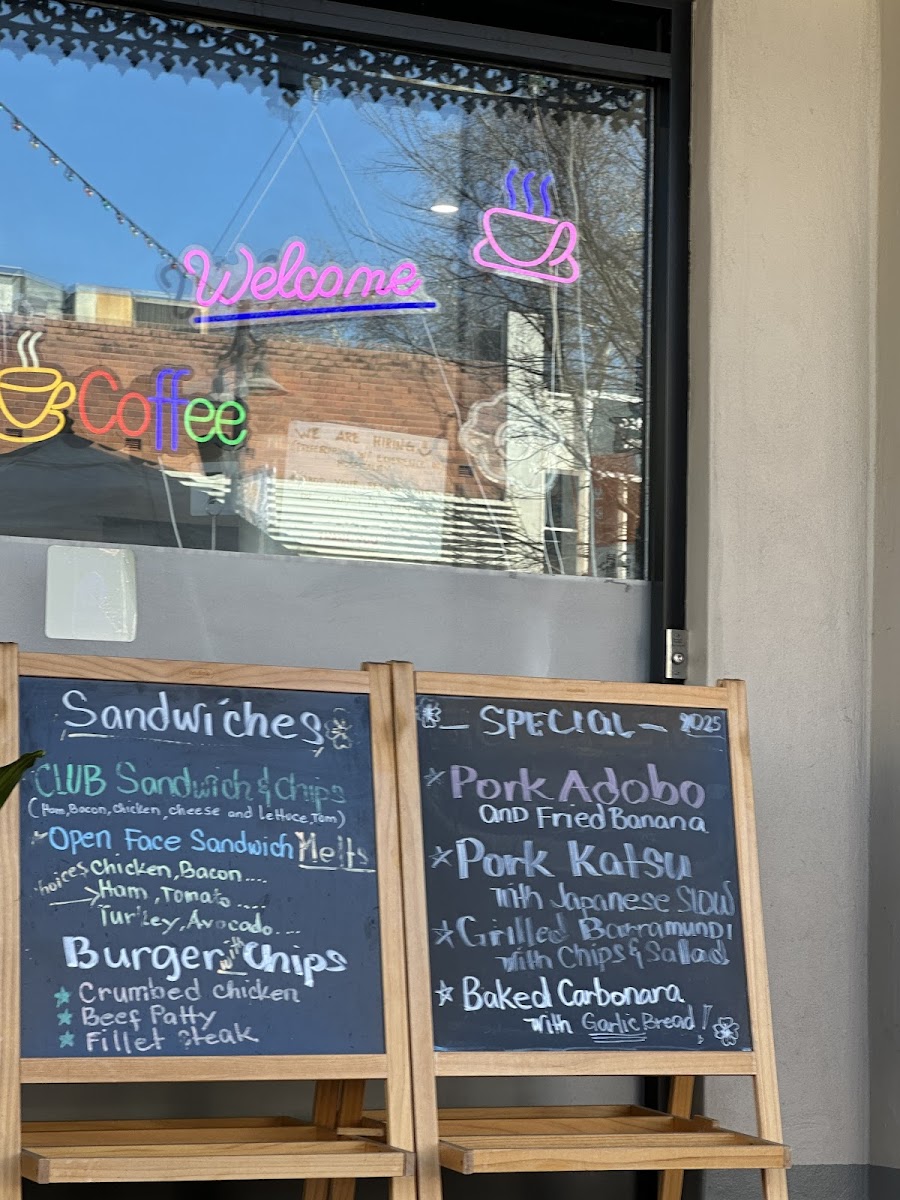 Welcome
Coffee
WE ARE HIRING
Sandwiches
CLUB Sandwich & Chips
(Ham, Bacon, chicken, cheese and Lettuce, Tom)
Open Face Sandwich Melts
choices Chicken, Bacon....
Ham, Tomato....
Turkey, Avocado....
Burger with Chips
Crumbed chicken
Beef Patty
Fillet steak
- SPECIAL - 2025
Pork Adobo
AND Fried Banana
Pork Katsu
with Japanese SLOW
Grilled Barramundi
with Chips & Sallad
Baked Carbonara
with Garlic Bread!